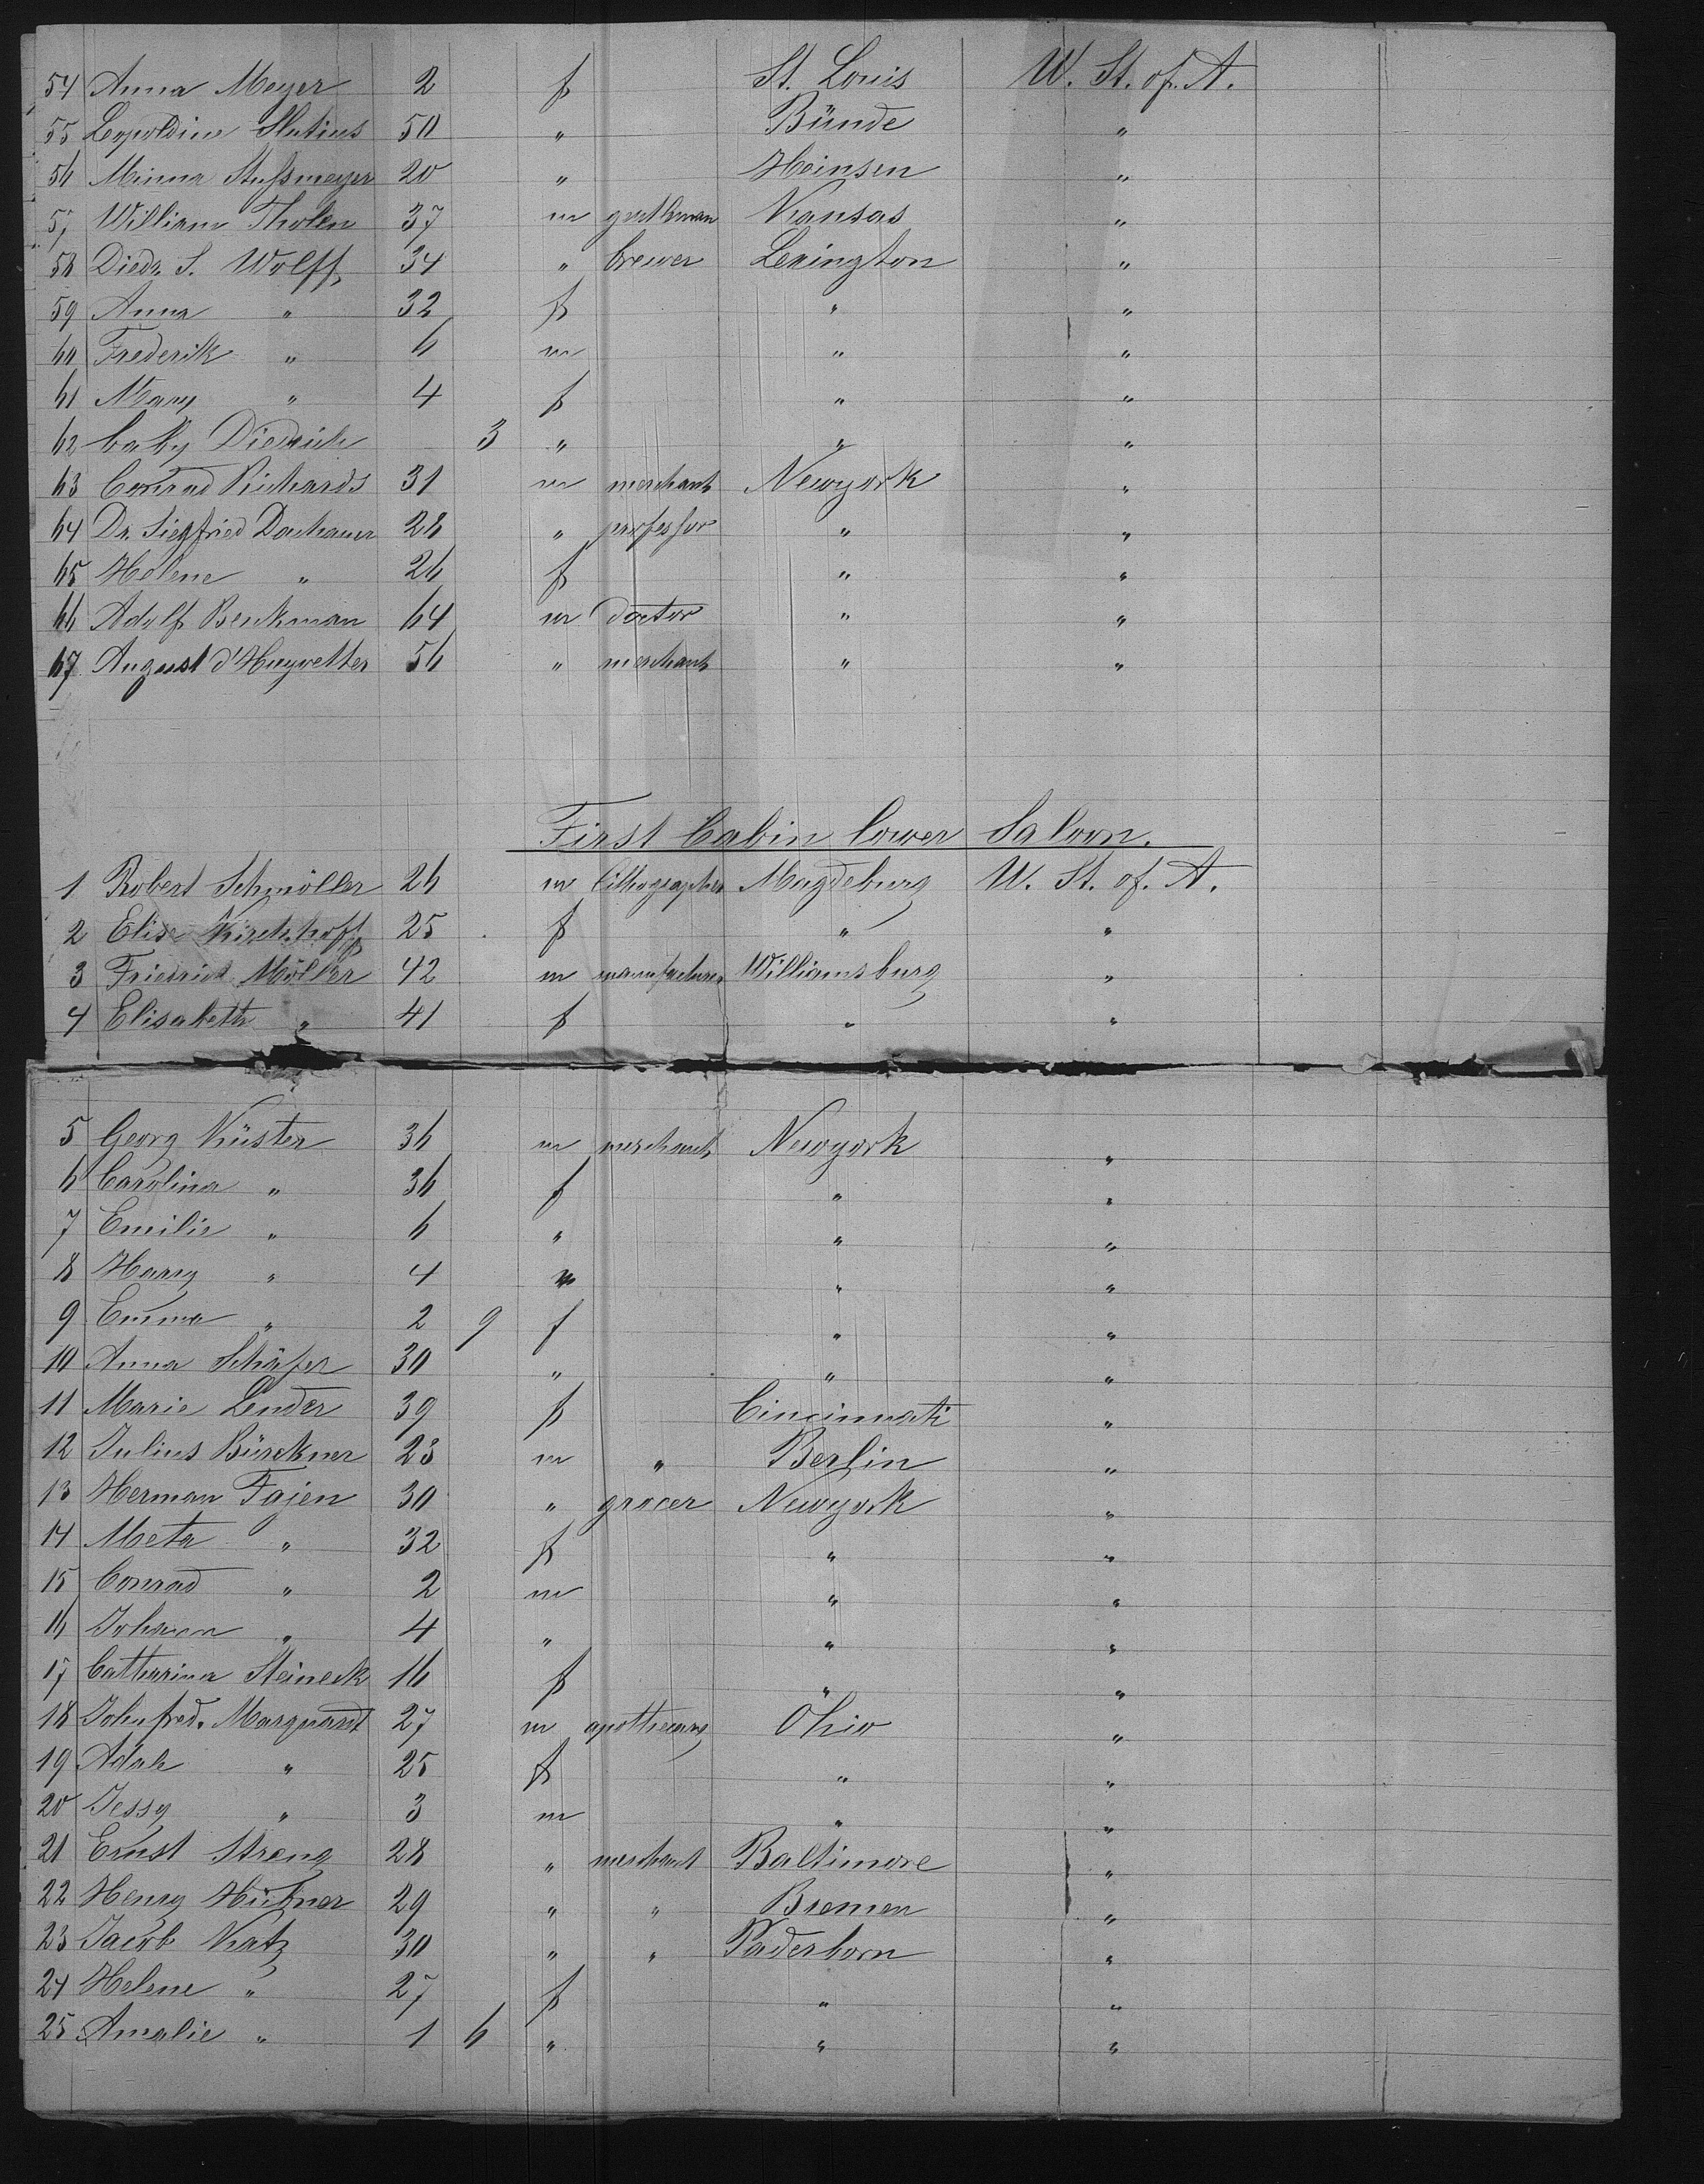 54 Anna Meyer 2 f St. Louis U. St. of. A.
55 Leopoldine 50 " Bünde "
56 Minna Stussmeyer 20 " Heinsen "
57 William Tholen 37 m gentleman Kansas "
58 Diedr. S. Wolff 34 " brewer Lexington "
59 Anna " 32 f " "
60 Frederik " 6 m " "
61 Mary " 4 f " "
62 baby Diedrich 3 " " "
63 Conrad Richards 31 m merchant Newyork "
64 Dr. Siegfried 28 " professor " "
65 Helene " 26 f " "
66 Adolf Benkman 64 m doctor " "
67 August d'Huyvetter 56 " merchant " "
First Cabin lower Saloon.
1 Robert Schmöller 26 m lithographer Magdeburg U. St. of. A.
2 Elise Kirchhoff 25 f " "
3 Friedrich Möller 42 m manufacturer Williamsburg "
4 Elisabeth " 41 f " "
5 Georg Küster 36 m merchant Newyork "
6 Carolina " 36 f " "
7 Emilie " 6 " " "
8 Harry " 4 m " "
9 Emma " 2 9 f " "
10 Anna Schäfer 30 " " "
11 Marie Lender 39 f Cincinnati "
12 Julius Bürckner 23 m " Berlin "
13 Herman Fajen 30 " grocer Newyork "
14 Meta " 32 f " "
15 Conrad " 2 m " "
16 Johann " 4 " " "
17 Catharina Steineck 16 f " "
18 John fred. Marquardt 27 m apothecary Ohio "
19 Adah " 25 f " "
20 Jessy " 3 m " "
21 Ernst Streng 28 " merchant Baltimore "
22 Henry Hübner 29 " " Bremen "
23 Jacob Katz 30 " " Paderborn "
24 Helene " 27 f " "
25 Amalie " 1 6 " " "